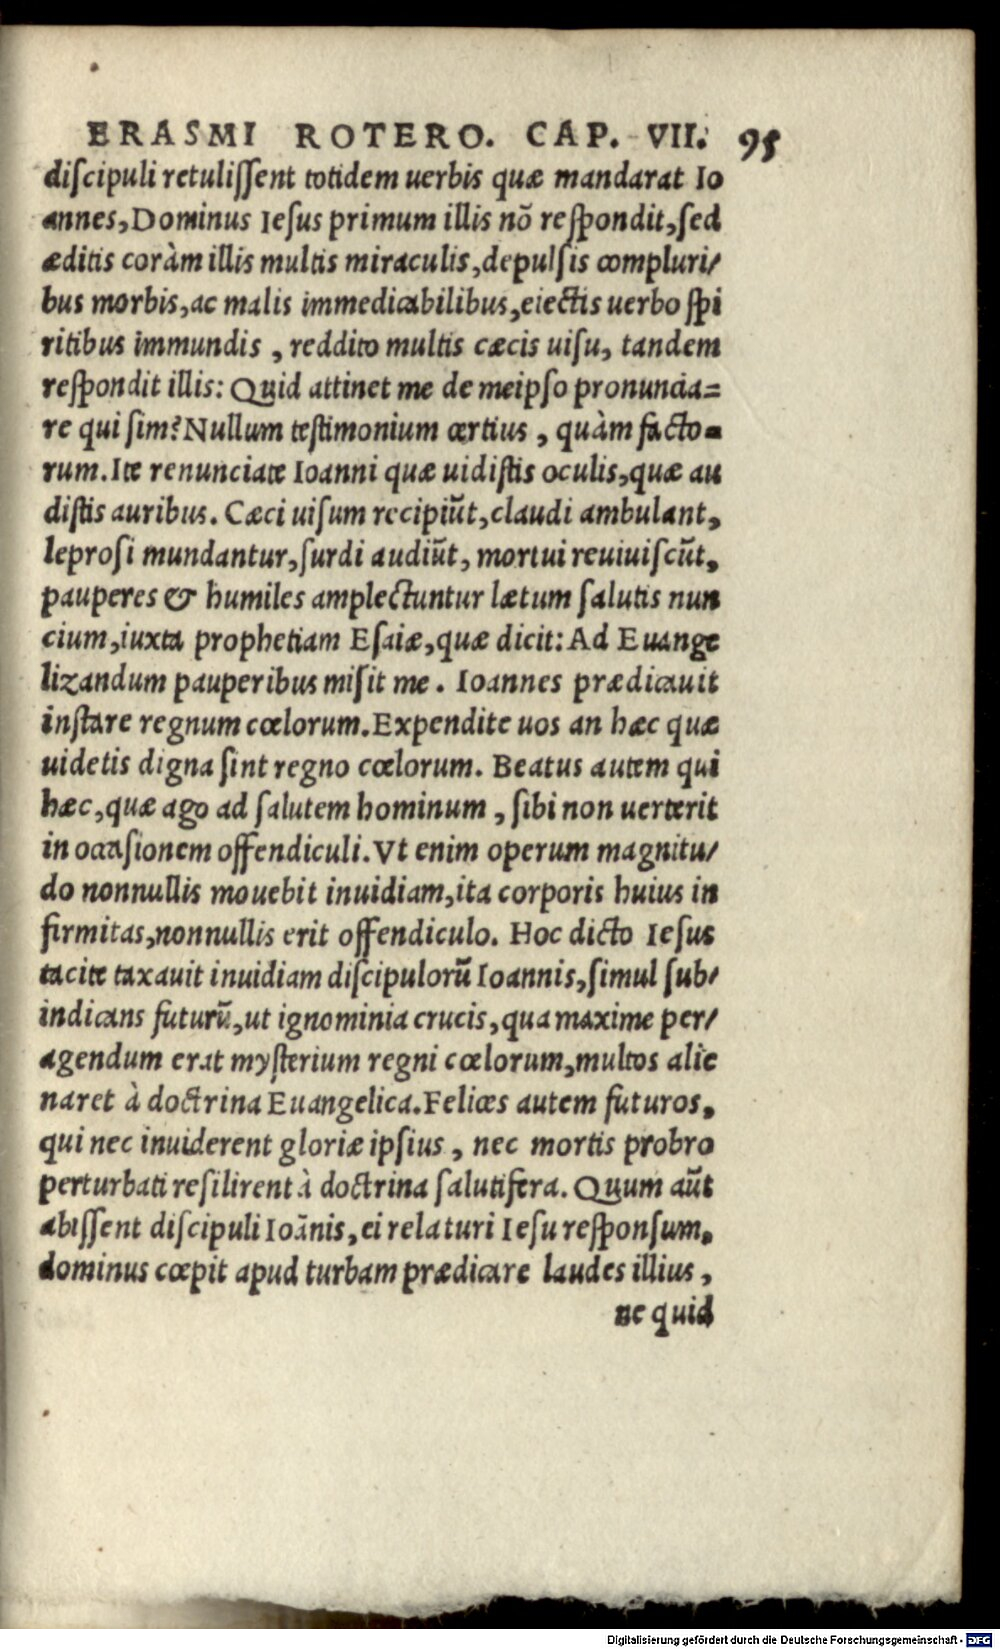 ERASMI ROTERO. CAP. VII. 95
diſcipuli retuliſſent totidem uerbis quæ mandarat Io
annes, Dominus Ieſus primum illis nõ reſpondit, ſed
æditis coràm illis multis miraculis, depulſis compluri/
bus morbis, ac malis immedicabilibus, eiectis uerbo ſpi
ritibus immundis , reddito multis cæcis uiſu, tandem
reſpondit illis: Quid attinet me de meipſo pronuncia=
re qui ſim? Nullum teſtimonium certius , quàm facto=
rum. Ite renunciate Ioanni quæ uidiſtis oculis, quæ au
diſtis auribus. Cæci uiſum recipiũt, claudi ambulant,
leproſi mundantur, ſurdi audiũt, mortui reuiuiſcũt,
pauperes & humiles amplectuntur lætum ſalutis nun
cium, iuxta prophetiam Eſaiæ, quæ dicit: Ad Euange
lizandum pauperibus miſit me. Ioannes prædicauit
inſtare regnum cœlorum. Expendite uos an hæc quæ
uidetis digna ſint regno cœlorum. Beatus autem qui
hæc, quæ ago ad ſalutem hominum , ſibi non uerterit
in occaſionem offendiculi. Vt enim operum magnitu/
do nonnullis mouebit inuidiam, ita corporis huius in
firmitas, nonnullis erit offendiculo. Hoc dicto Ieſus
tacite taxauit inuidiam diſcipulorũ Ioannis, ſimul ſub/
indicans futurũ, ut ignominia crucis, qua maxime per/
agendum erat myſterium regni cœlorum, multos alie
naret à doctrina Euangelica. Felices autem futuros,
qui nec inuiderent gloriæ ipſius , nec mortis probro
perturbati reſilirent à doctrina ſalutifera. Quum aũt
abiſſent diſcipuli Ioãnis, ei relaturi Ieſu reſponſum,
dominus cœpit apud turbam prædicare laudes illius ,
ne quid
Digitalisierung gefördert durch die Deutsche Forschungsgemeinschaft - DFG